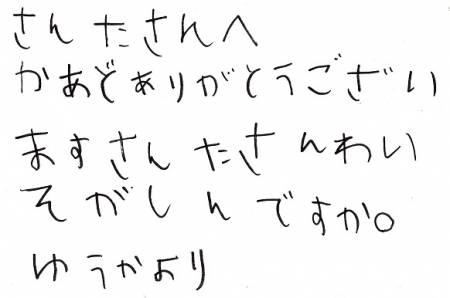 さんたさんへ
かあどありがとうござい
ますさんたさんわい
そがしんですか。
ゆうかより